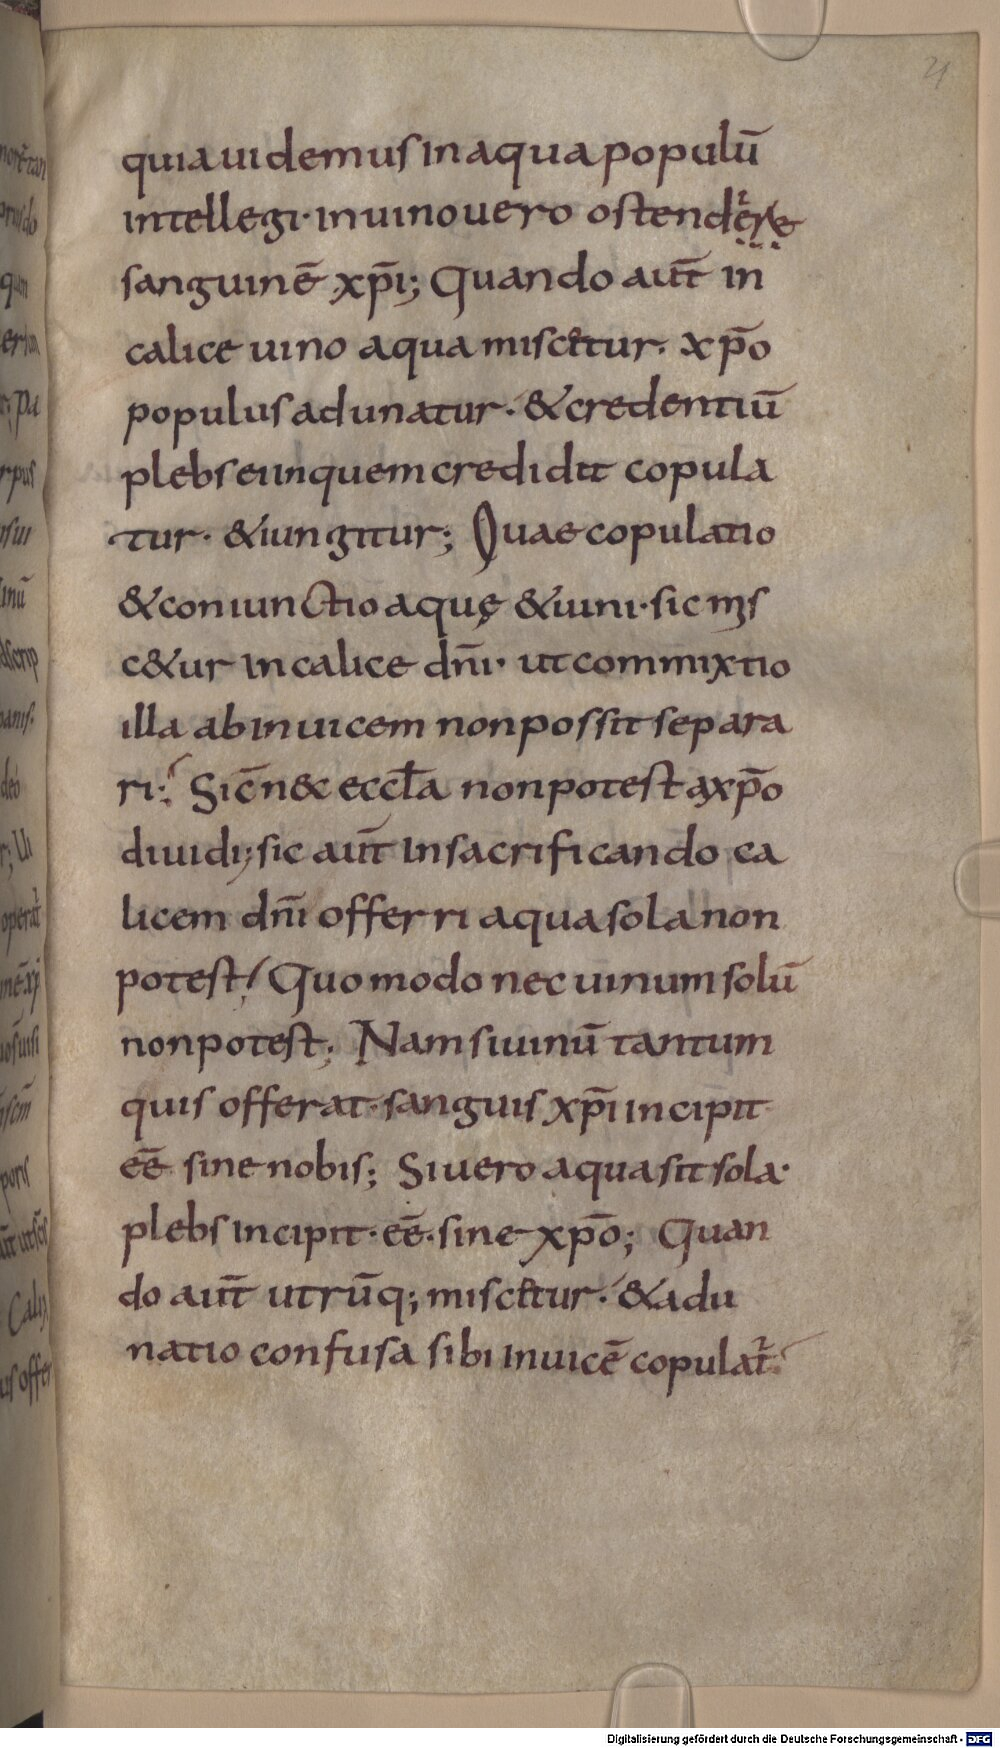 21
quia uidemus in aqua populū
intellegi· in uino uero ostendere
sanguinē xp̄i; Quando aut̄ in
calice uino aqua miscetur· xp̄o
populus adunatur· & credentiū
plebs ei in quem credidit copula
tur· & iungitur; Quae copulatio
& coniunctio aquę & uini· sic mis
c&ur in calice dn̄i· ut commixtio
illa ab inuicem non possit separa
ri; Sic n̄ & eccl̄a non potest a xp̄o
diuidi; sic aut̄ in sacrificando ca
licem dn̄i offerri aqua sola non
potest; Quomodo nec uinum solū
non potest; Nam si uinū tantum
quis offerat· sanguis xp̄i incipit
eē sine nobis; Si uero aqua sit sola·
plebs incipit· eē· sine xp̄o; Quan
do aut̄ utrūq; miscetur· & adu
natio confusa sibi inuicē copulat᷑
Digitalisierung gefördert durch die Deutsche Forschungsgemeinschaft - DFG